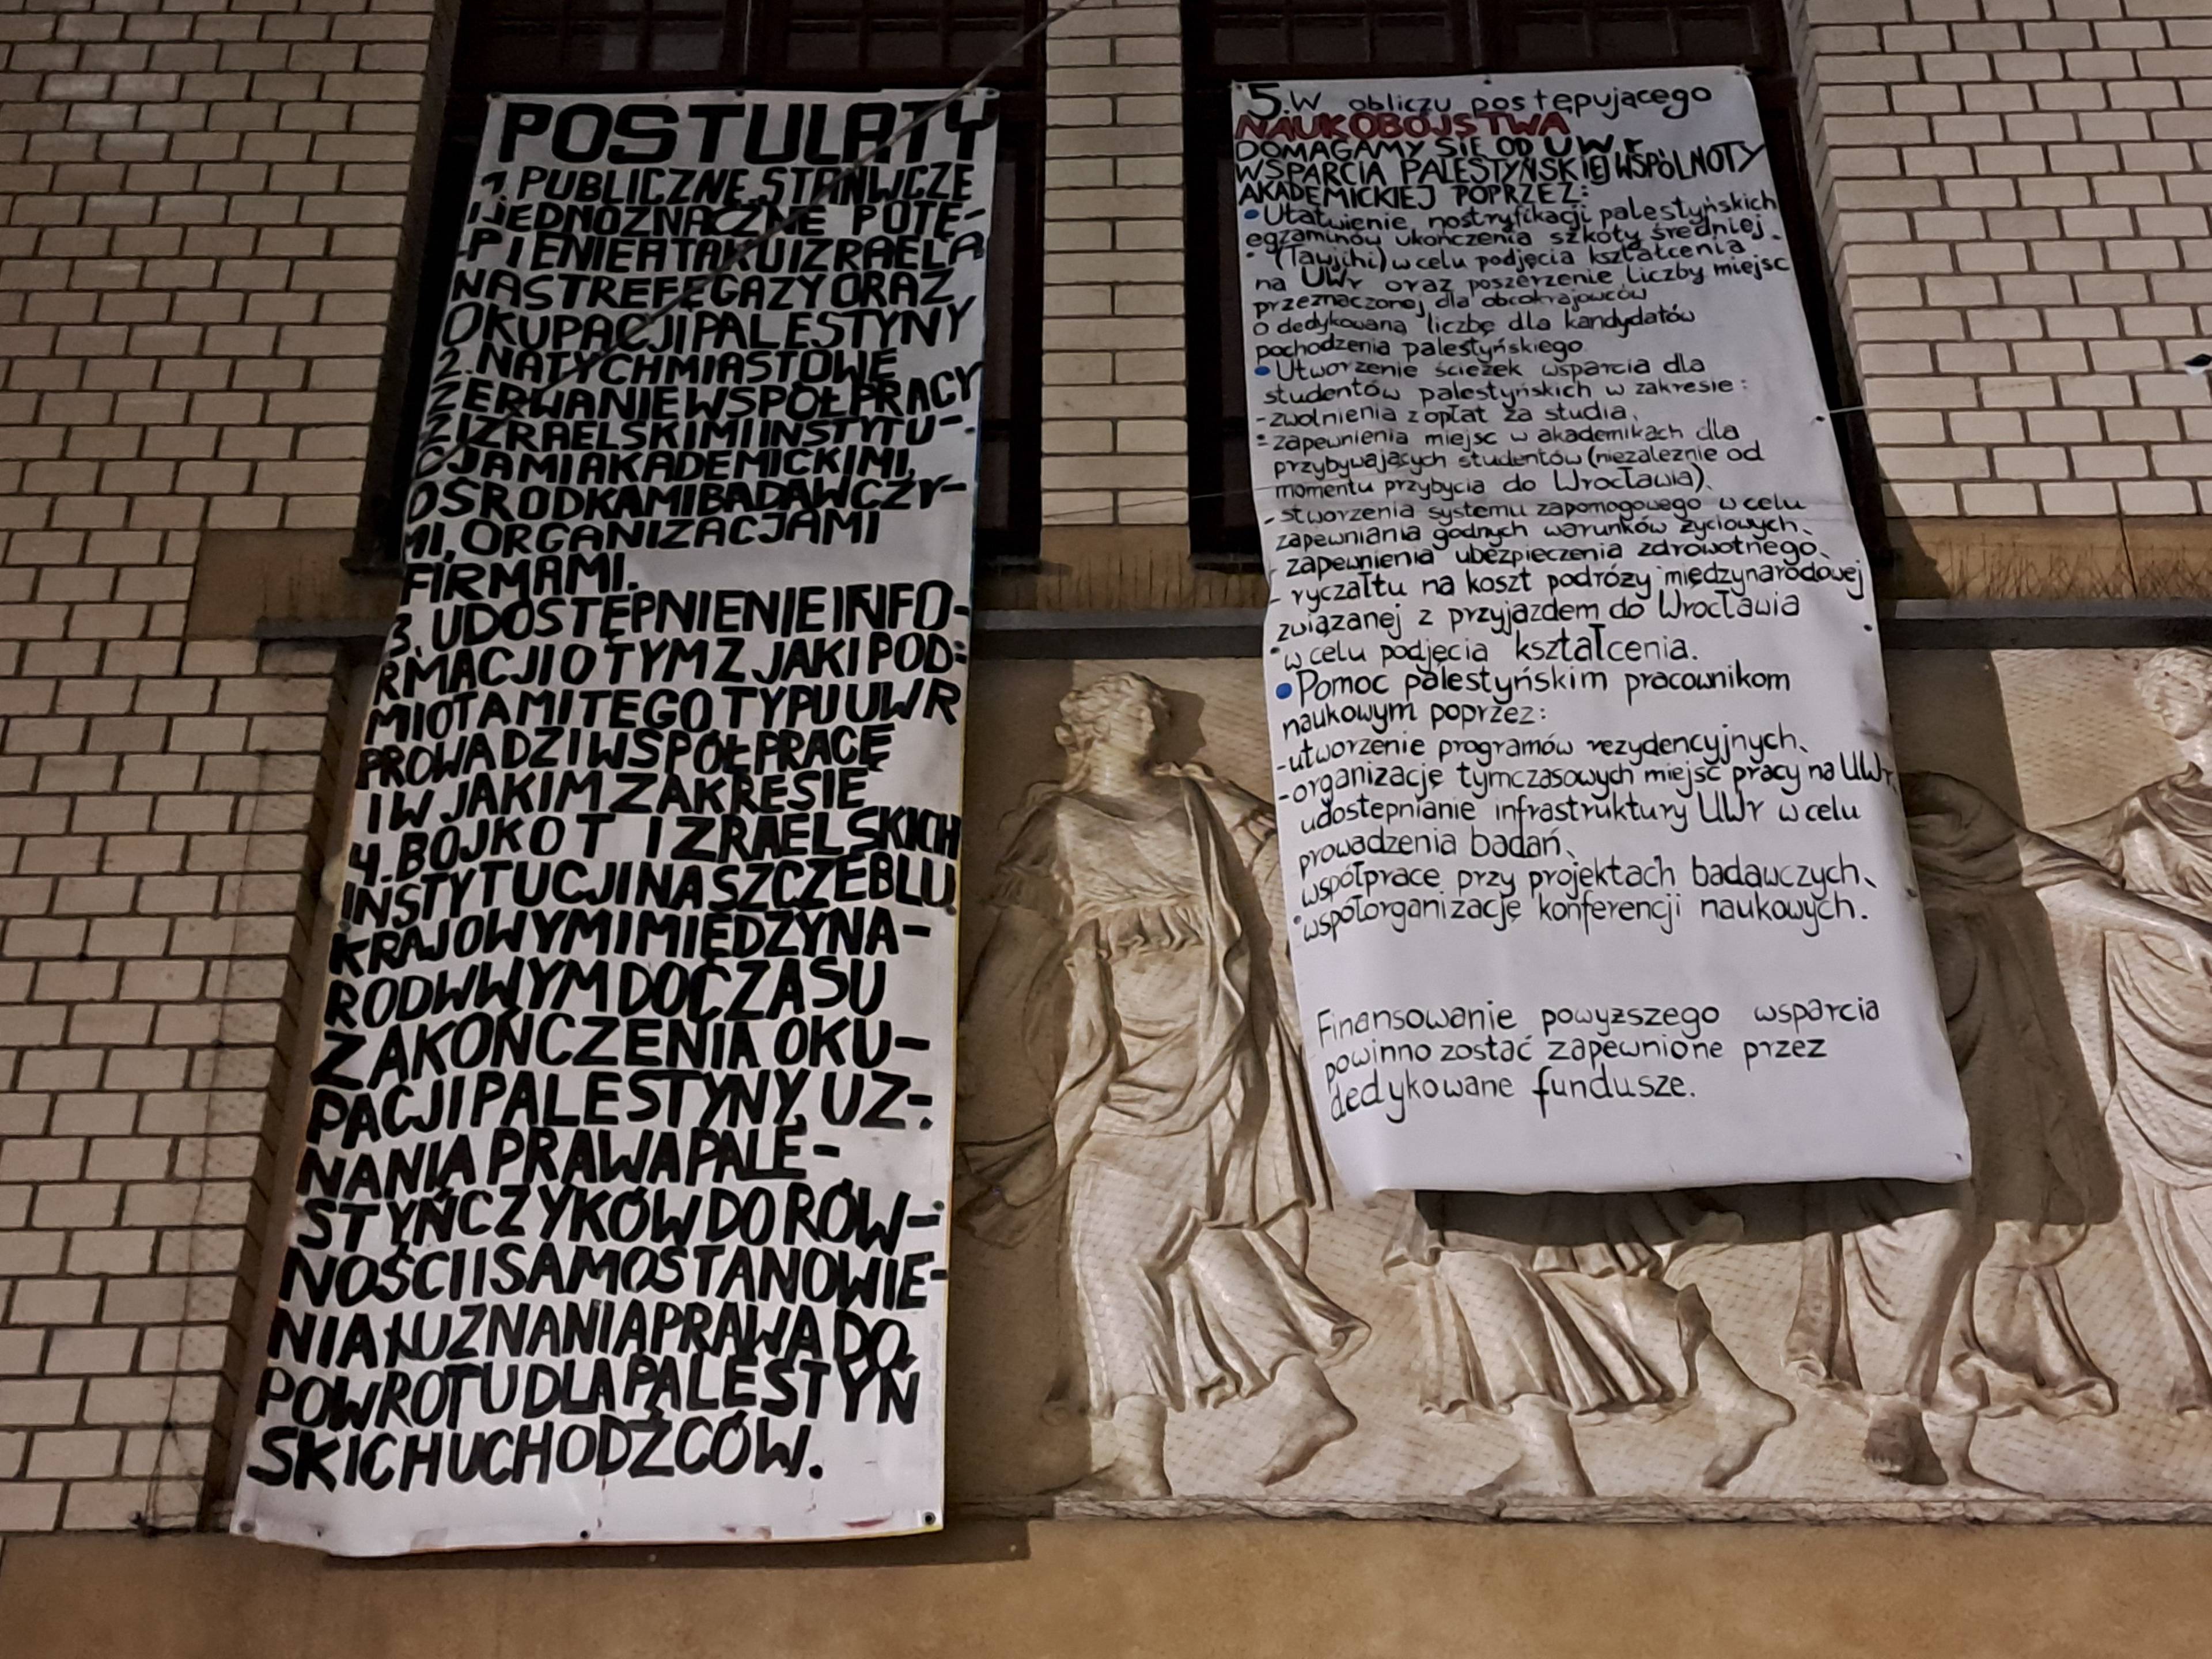 POSTULATY
1. PUBLICZNE, STANWCZE
I JEDNOZNACZNE POTĘ-
PIENIE ATAKU IZRAELA
NA STREFĘ GAZY ORAZ
OKUPACJI PALESTYNY
2. NATYCHMIASTOWE
ZERWANIE WSPÓŁPRACY
Z IZRAELSKIMI INSTYTU-
CJAMI AKADEMICKIMI,
OŚRODKAMI BADAWCZY-
MI, ORGANIZACJAMI
FIRMAMI.
3. UDOSTĘPNIENIE INFO-
RMACJI O TYM Z JAKI POD-
MIOTAMI TEGO TYPU UWR
PROWADZI WSPÓŁPRACĘ
I W JAKIM ZAKRESIE
4. BOJKOT IZRAELSKICH
INSTYTUCJI NA SZCZEBLU
KRAJOWYM I MIĘDZYNA-
RODWWYM DO CZASU
ZAKOŃCZENIA OKU-
PACJI PALESTYNY, UZ-
NANIA PRAWA PALE-
STYŃCZYKÓW DO RÓW-
NOŚCI I SAMOSTANOWIE-
NIA I UZNANIA PRAWA DO
POWROTU DLA PALESTYŃ
SKICH UCHODŹCÓW.
5. W obliczu postępującego
NAUKOBÓJSTWA
DOMAGAMY SIĘ OD UWr
WSPARCIA PALESTYŃSKIEJ WSPÓLNOTY
AKADEMICKIEJ POPRZEZ:
• Ułatwienie nostryfikacji palestyńskich
egzaminów ukończenia szkoły średniej
(Tawjihi) w celu podjęcia kształcenia
na UWr oraz poszerzenie liczby miejsc
przeznaczonej dla obcokrajowców
o dedykowaną liczbę dla kandydatów
pochodzenia palestyńskiego
• Utworzenie ścieżek wsparcia dla
studentów palestyńskich w zakresie:
- zwolnienia z opłat za studia,
- zapewnienia miejsc w akademikach dla
przybywających studentów (niezależnie od
momentu przybycia do Wrocławia),
- stworzenia systemu zapomogowego w celu
zapewniania godnych warunków życiowych,
- zapewnienia ubezpieczenia zdrowotnego,
- ryczałtu na koszt podróży międzynarodowej
związanej z przyjazdem do Wrocławia
w celu podjęcia kształcenia.
• Pomoc palestyńskim pracownikom
naukowym poprzez:
- utworzenie programów rezydencyjnych,
- organizację tymczasowych miejsc pracy na UWr,
udostępnianie infrastruktury UWr w celu
prowadzenia badań,
współpracę przy projektach badawczych,
współorganizację konferencji naukowych.
Finansowanie powyższego wsparcia
powinno zostać zapewnione przez
dedykowane fundusze.